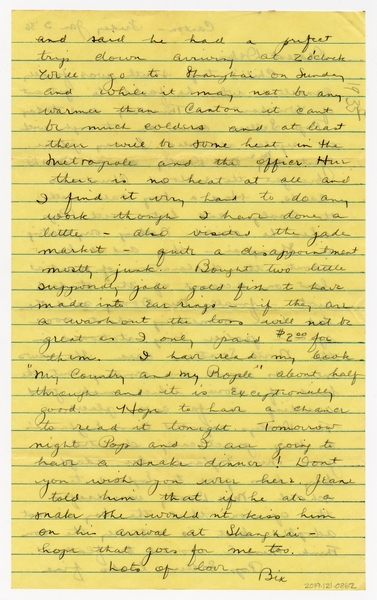 and said he had a perfect
trip down arriving at 2 o'clock
We'll go to Shanghai on Sunday
and while it may not be any
warmer than Canton it can't
be much colder and at least
there will be some heat in the
Metropole and the office. Here
there is no heat at all and
I find it very hard to do any
work though I have done a
little - also visited the jade
market - quite a disappointment
mostly junk. Bought two little
supposedly jade gold fish to have
made into earrings - if they are
a washout the loss will not be
great as I only paid $2.00 for
them. I have read my book
"My Country and my People" about half
through and it is exceptionally
good. Hope to have a chance
to read it tonight. Tomorrow
night Pop and I are going to
have a snake dinner! Dont
you wish you were here. Jeane
told him that if he ate a
snake she wouldn't kiss him
on his arrival at Shanghai -
hope that goes for me too.
Lots of love
Bix
1935
2019.121.0362